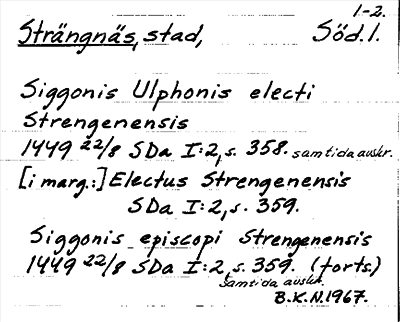 1-2.
Strängnäs, stad, Söd.l.
Siggonis Ulphonis electi
Strengenensis
1449 22/8 SDa I:2, s. 358. samtida avskr.
[i marg.:] Electus Strengenensis
SDa I:2, s. 359.
Siggonis episcopi Strengenensis
1449 22/8 SDa I:2, s. 359. (forts.)
samtida avskr.
B.K.N. 1967.